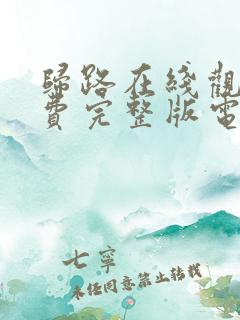 歸路在綫觀
費完整版電
七寧
未經同意禁止轉載